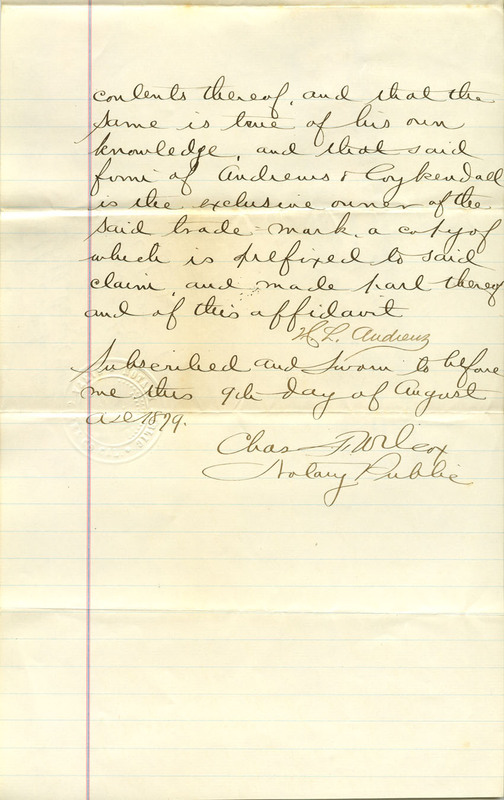 contents thereof, and that the
same is true of his own
knowledge, and that said
firm of Andrews & Coykendall
is the exclusive owner of the
said trade-mark, a copy of
which is prefixed to said
claim, and made part thereof
and of this affidavit
H. L. Andrews
Subscribed and Sworn to before
me this 9th day of August
A.D. 1879.
Chas F. Wilcox
Notary Public